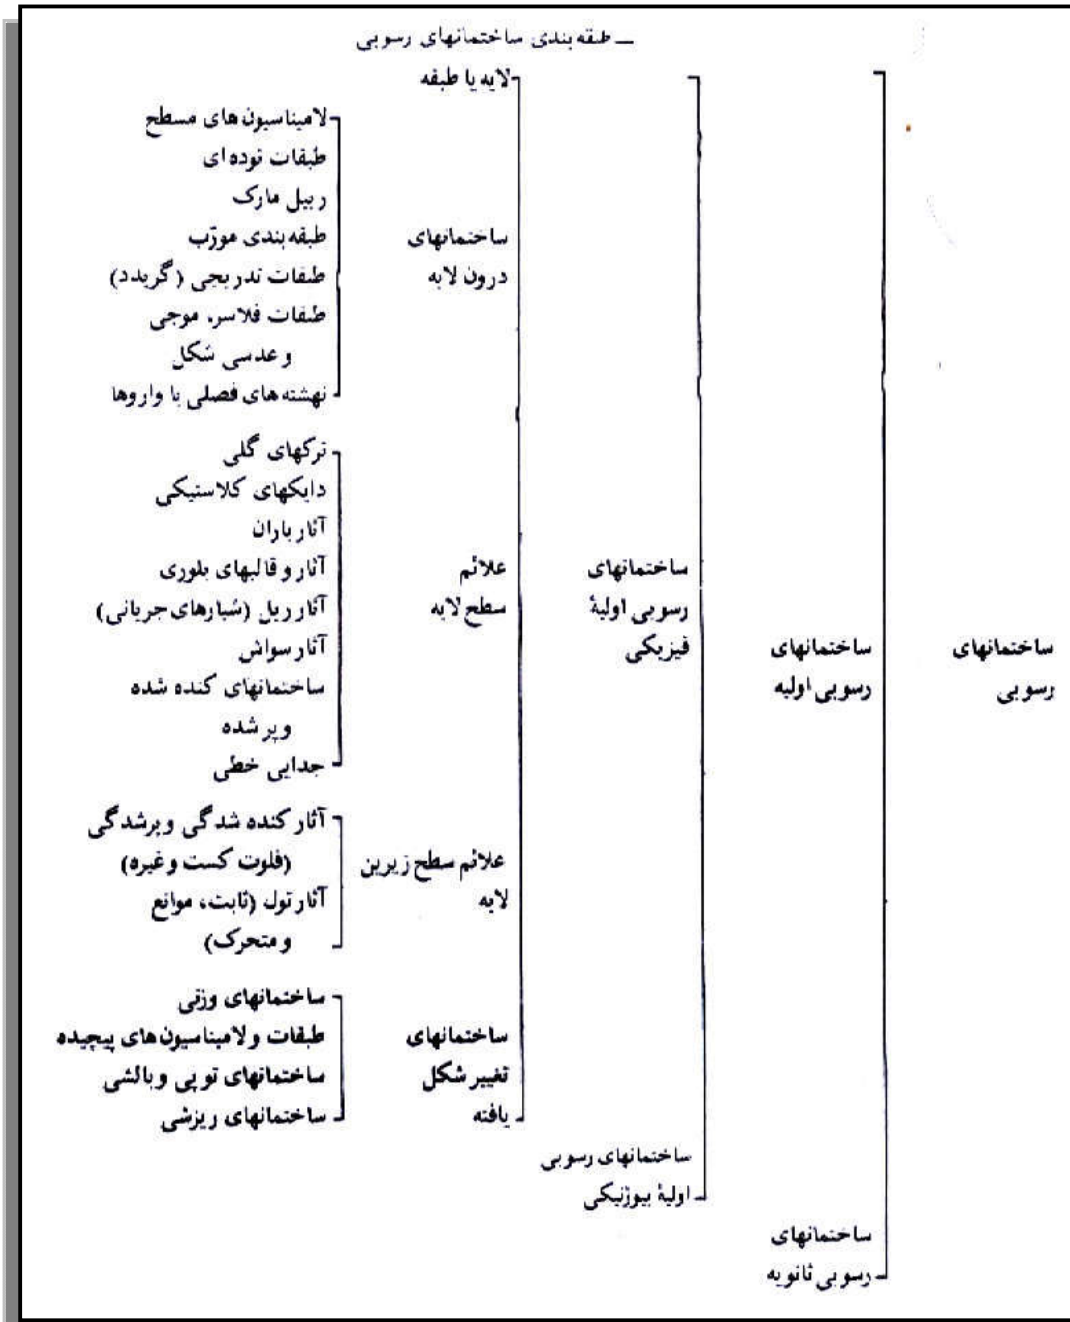 ـ طبقه‌بندی ساختمانهای رسوبی
ساختمانهای
رسوبی
ساختمانهای
رسوبی اولیه
ساختمانهای
رسوبی اولیهٔ
فیزیکی
لایه یا طبقه
ساختمانهای
درون لایه
لامیناسیون‌های مسطح
طبقات توده‌ای
ریپل مارک
طبقه‌بندی مورّب
طبقات تدریجی (گریدد)
طبقات فلاسر، موجی
و عدسی شکل
نهشته‌های فصلی یا واروها
علائم
سطح لایه
ترکهای گلی
دایکهای کلاستیکی
آثار باران
آثار و قالبهای بلوری
آثار ریل (شیارهای جریانی)
آثار سواش
ساختمانهای کنده شده
و پر شده
جدایی خطی
علائم سطح زیرین
لایه
آثار کنده شدگی و پرشدگی
(فلوت کست و غیره)
آثار تول (ثابت، موانع
و متحرک)
ساختمانهای
تغییر شکل
یافته
ساختمانهای وزنی
طبقات و لامیناسیون‌های پیچیده
ساختمانهای توپی و بالشی
ساختمانهای ریزشی
ساختمانهای رسوبی
اولیهٔ بیوژنیکی
ساختمانهای
رسوبی ثانویه